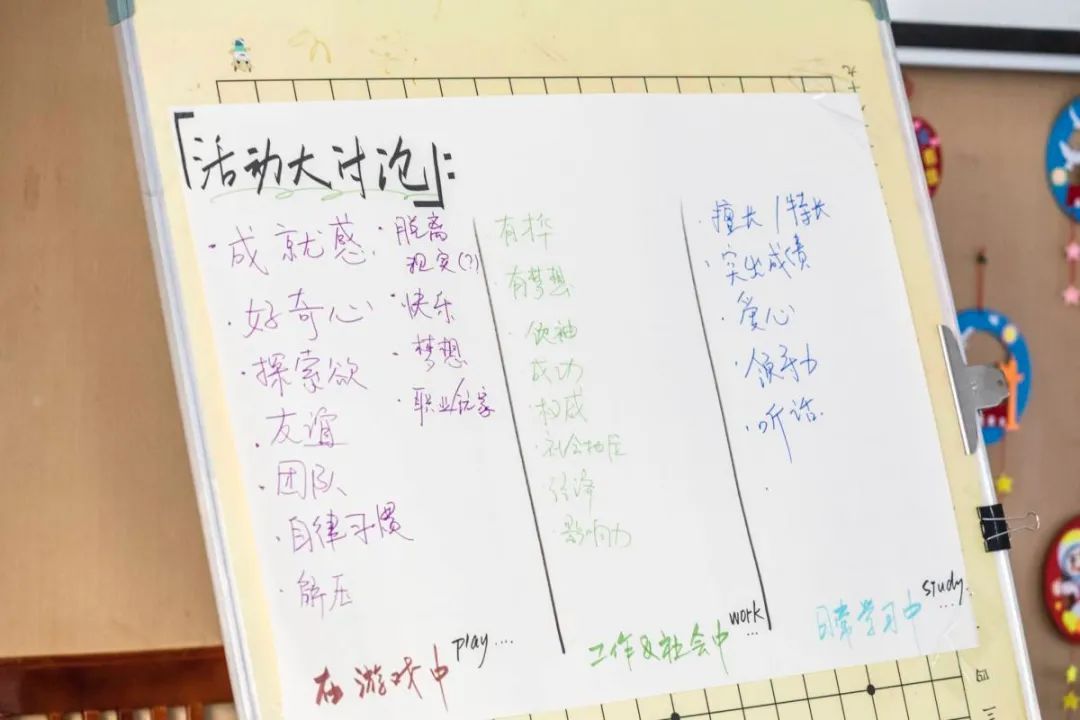 「活动大讨论」:
· 成就感
· 好奇心
· 探索欲
· 友谊
· 团队
· 自律习惯
· 解压
· 脱离
现实(?)
· 快乐
· 梦想
· 职业/玩家
在游戏中 play....
有梦想
· 领袖
成功
· 权威
· 社会地位
经济
· 影响力
工作&社会中 work...
· 擅长/特长
· 突出成绩
· 爱心
· 领导力
· 听话.
日常学习中 study...